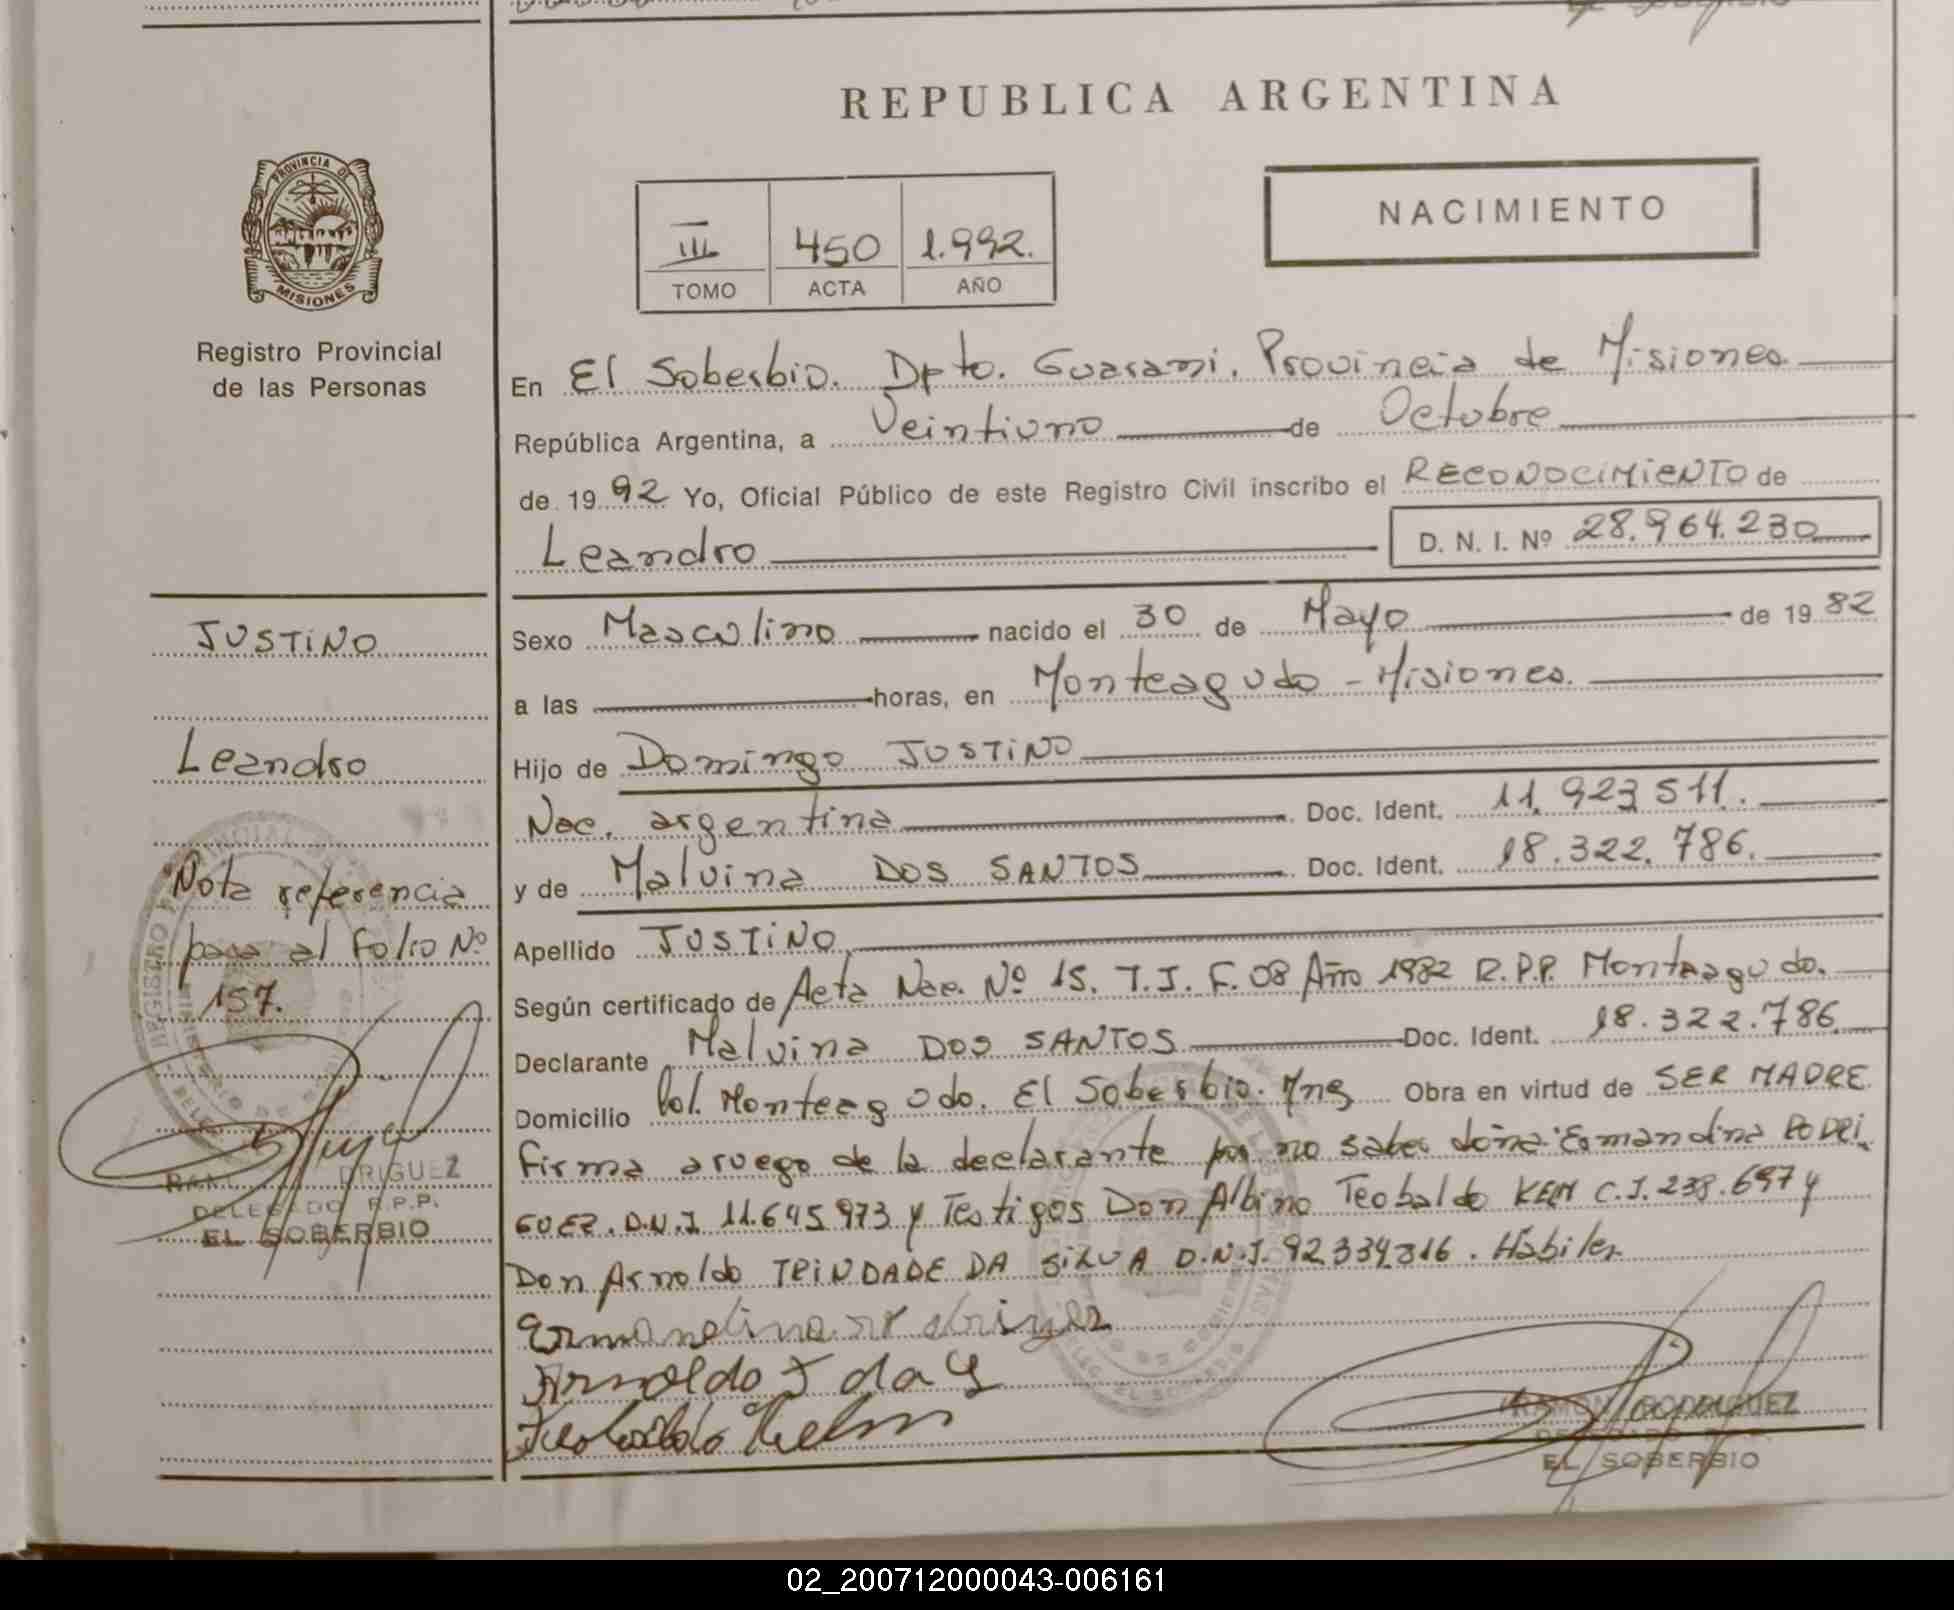 REPUBLICA ARGENTINA
PROVINCIA DE
MISIONES
Registro Provincial
de las Personas
NACIMIENTO
III 450 1.992.
TOMO ACTA AÑO
En El Soberbio. Dpto. Guarani. Provincia de Misiones.
República Argentina, a Veintiuno de Octubre
de 1992 Yo, Oficial Público de este Registro Civil inscribo el RECONOCIMIENTO de
Leandro D. N. I. Nº 28.964.230
Sexo Masculino nacido el 30 de Mayo de 1982
a las horas, en Monteagudo - Misiones.
Hijo de Domingo JUSTINO
Nac. argentina Doc. Ident. 11.923511.
y de Malvina DOS SANTOS Doc. Ident. 18.322.786.
Apellido JUSTINO
Según certificado de Acta Nac. Nº 15. T.I. F. 08 Año 1982 R.P.P. Monteagudo.
Declarante Malvina DOS SANTOS Doc. Ident. 18.322.786
Domicilio Col. Monteagudo. El Soberbio. Mns Obra en virtud de SER MADRE
firma aruego de la declarante por no saber doña: Ermandina RODRI
GUEZ. D.N.I 11.645973 y Testigos Don Albino Teobaldo KELM C.I. 238.697 y
Don Arnoldo TRINDADE DA SILVA D.N.I. 92334316. Hábiles
Arnoldo T da S
Teobaldo Kelm
RAMON RODRIGUEZ
EL SOBERBIO
JUSTINO
Leandro
Nota referencia
pasa al Folio Nº
157.
DELEGADO R.P.P.
EL SOBERBIO
02_200712000043-006161